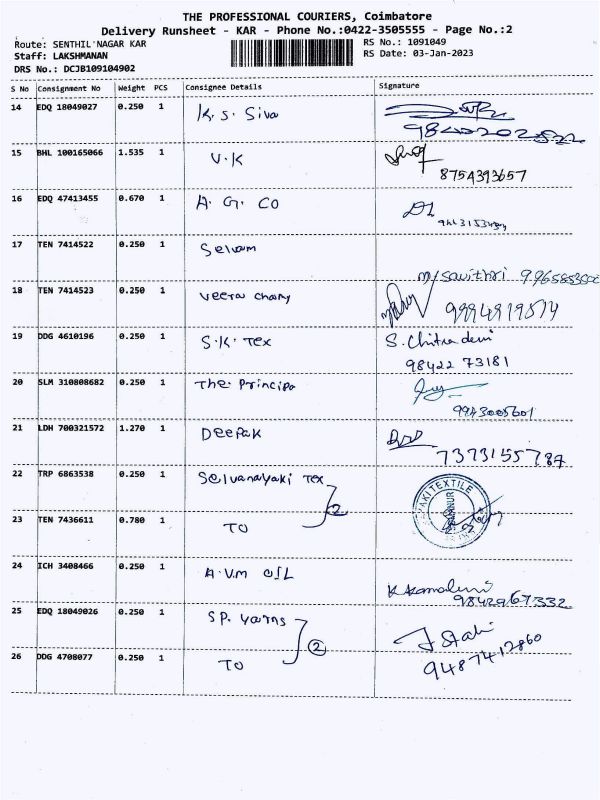 THE PROFESSIONAL COURIERS, Coimbatore
Delivery Runsheet - KAR - Phone No.:0422-3505555 - Page No.:2
Route: SENTHIL NAGAR KAR
RS No.: 1091049
Staff: LAKSHMANAN
RS Date: 03-Jan-2023
DRS No.: DCJB109104902
S No Consignment No Weight PCS Consignee Details Signature
14 EDQ 18049027 0.250 1 K. S. Siva
15 BHL 100165066 1.535 1 V.K 8754393657
16 EDQ 47413455 0.670 1 A. G. CO
17 TEN 7414522 0.250 1 Selvam m/savithri
18 TEN 7414523 0.250 1 Veera chary 9994919514
19 DDG 4610196 0.250 1 S.K. Tex S. Chitradevi
98422 73181
20 SLM 310808682 0.250 1 The Principa 9943005601
21 LDH 700321572 1.270 1 Deepak 7373155787
22 TRP 6863538 0.250 1 Selvanayaki Tex 2
23 TEN 7436611 0.780 1 TO
24 ICH 3408466 0.250 1 A.V.M OIL
9842967332
25 EDQ 18049026 0.250 1 SP. Yarns 2
26 DDG 4708077 0.250 1 TO 9487412860